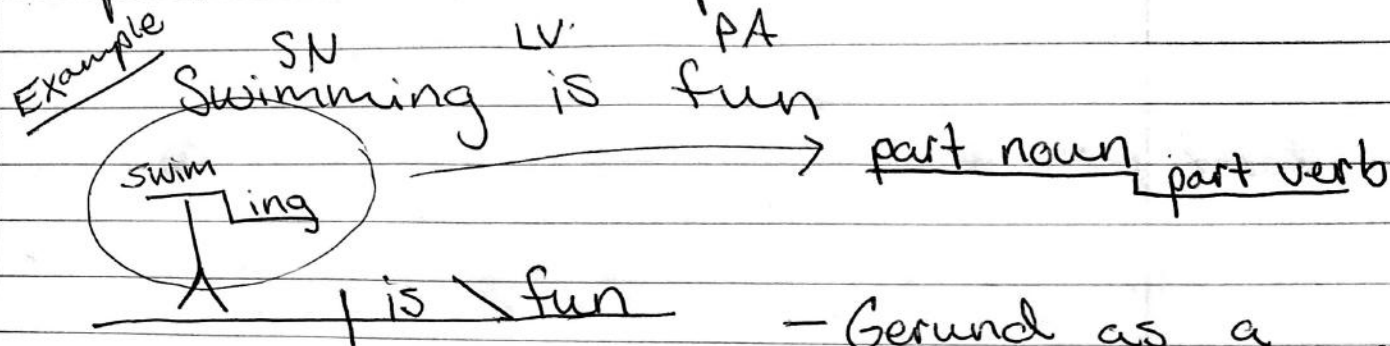 Example
SN LV PA
Swimming is fun
swim ing
part noun part verb
is \ fun
- Gerund as a